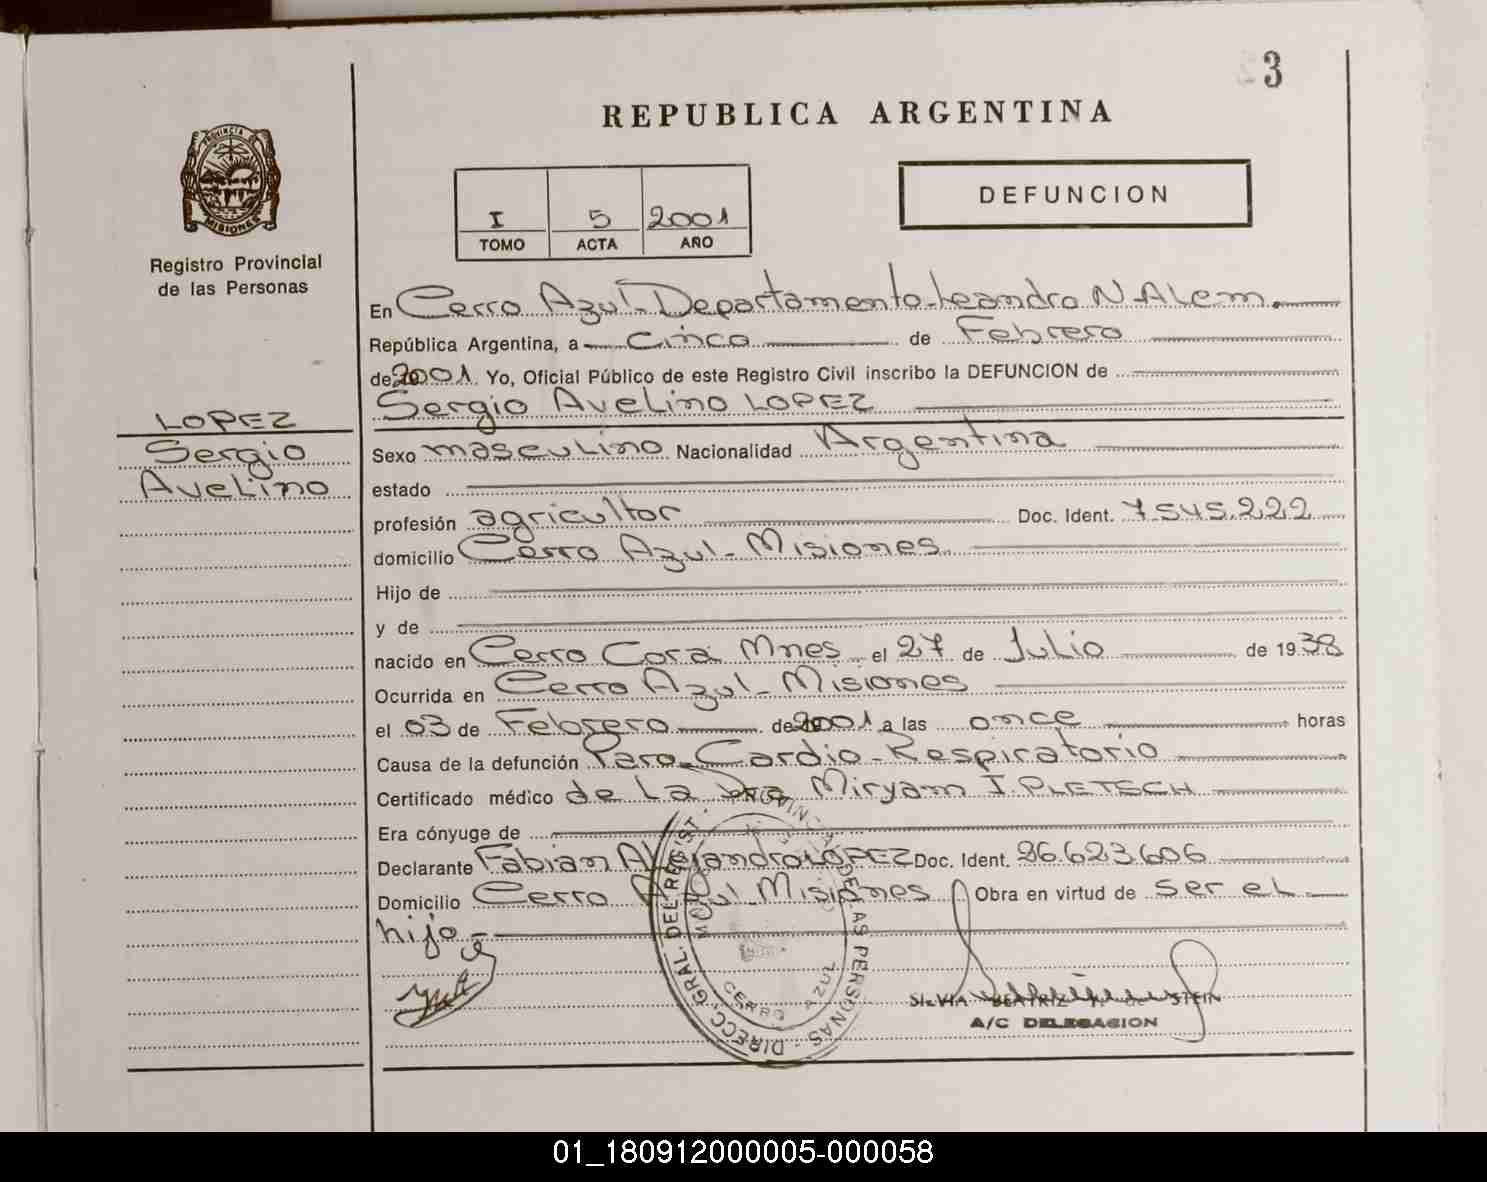 3
REPUBLICA ARGENTINA
PROVINCIA DE
MISIONES
Registro Provincial
de las Personas
I 5 2001
TOMO ACTA AÑO
DEFUNCION
En Cerro Azul-Departamento-Leandro N-ALem.
República Argentina, a cinco de Febrero
de 2001. Yo, Oficial Público de este Registro Civil inscribo la DEFUNCION de
Sergio Avelino LOPEZ
LOPEZ
Sergio
Avelino
Sexo masculino Nacionalidad Argentina
estado
profesión agricultor Doc. Ident. 7.545.222
domicilio Cerro Azul-Misiones
Hijo de
y de
nacido en Cerro Corá Mnes el 27 de Julio de 1938
Ocurrida en Cerro Azul-Misiones
el 03 de Febrero de 2001 a las once horas
Causa de la defunción Paro-Cardio-Respiratorio
Certificado médico de La Dra Miryam I. PLETSCH
Era cónyuge de
Declarante Fabian Alejandro LOPEZ Doc. Ident. 26.623.606
Domicilio Cerro Azul-Misiones Obra en virtud de ser el
hijo
DIRECC. GRAL. DEL REGIST. PROVINCIAL DE LAS PERSONAS
CERRO AZUL
SILVIA BEATRIZ STEIN
A/C DELEGACION
01_180912000005-000058